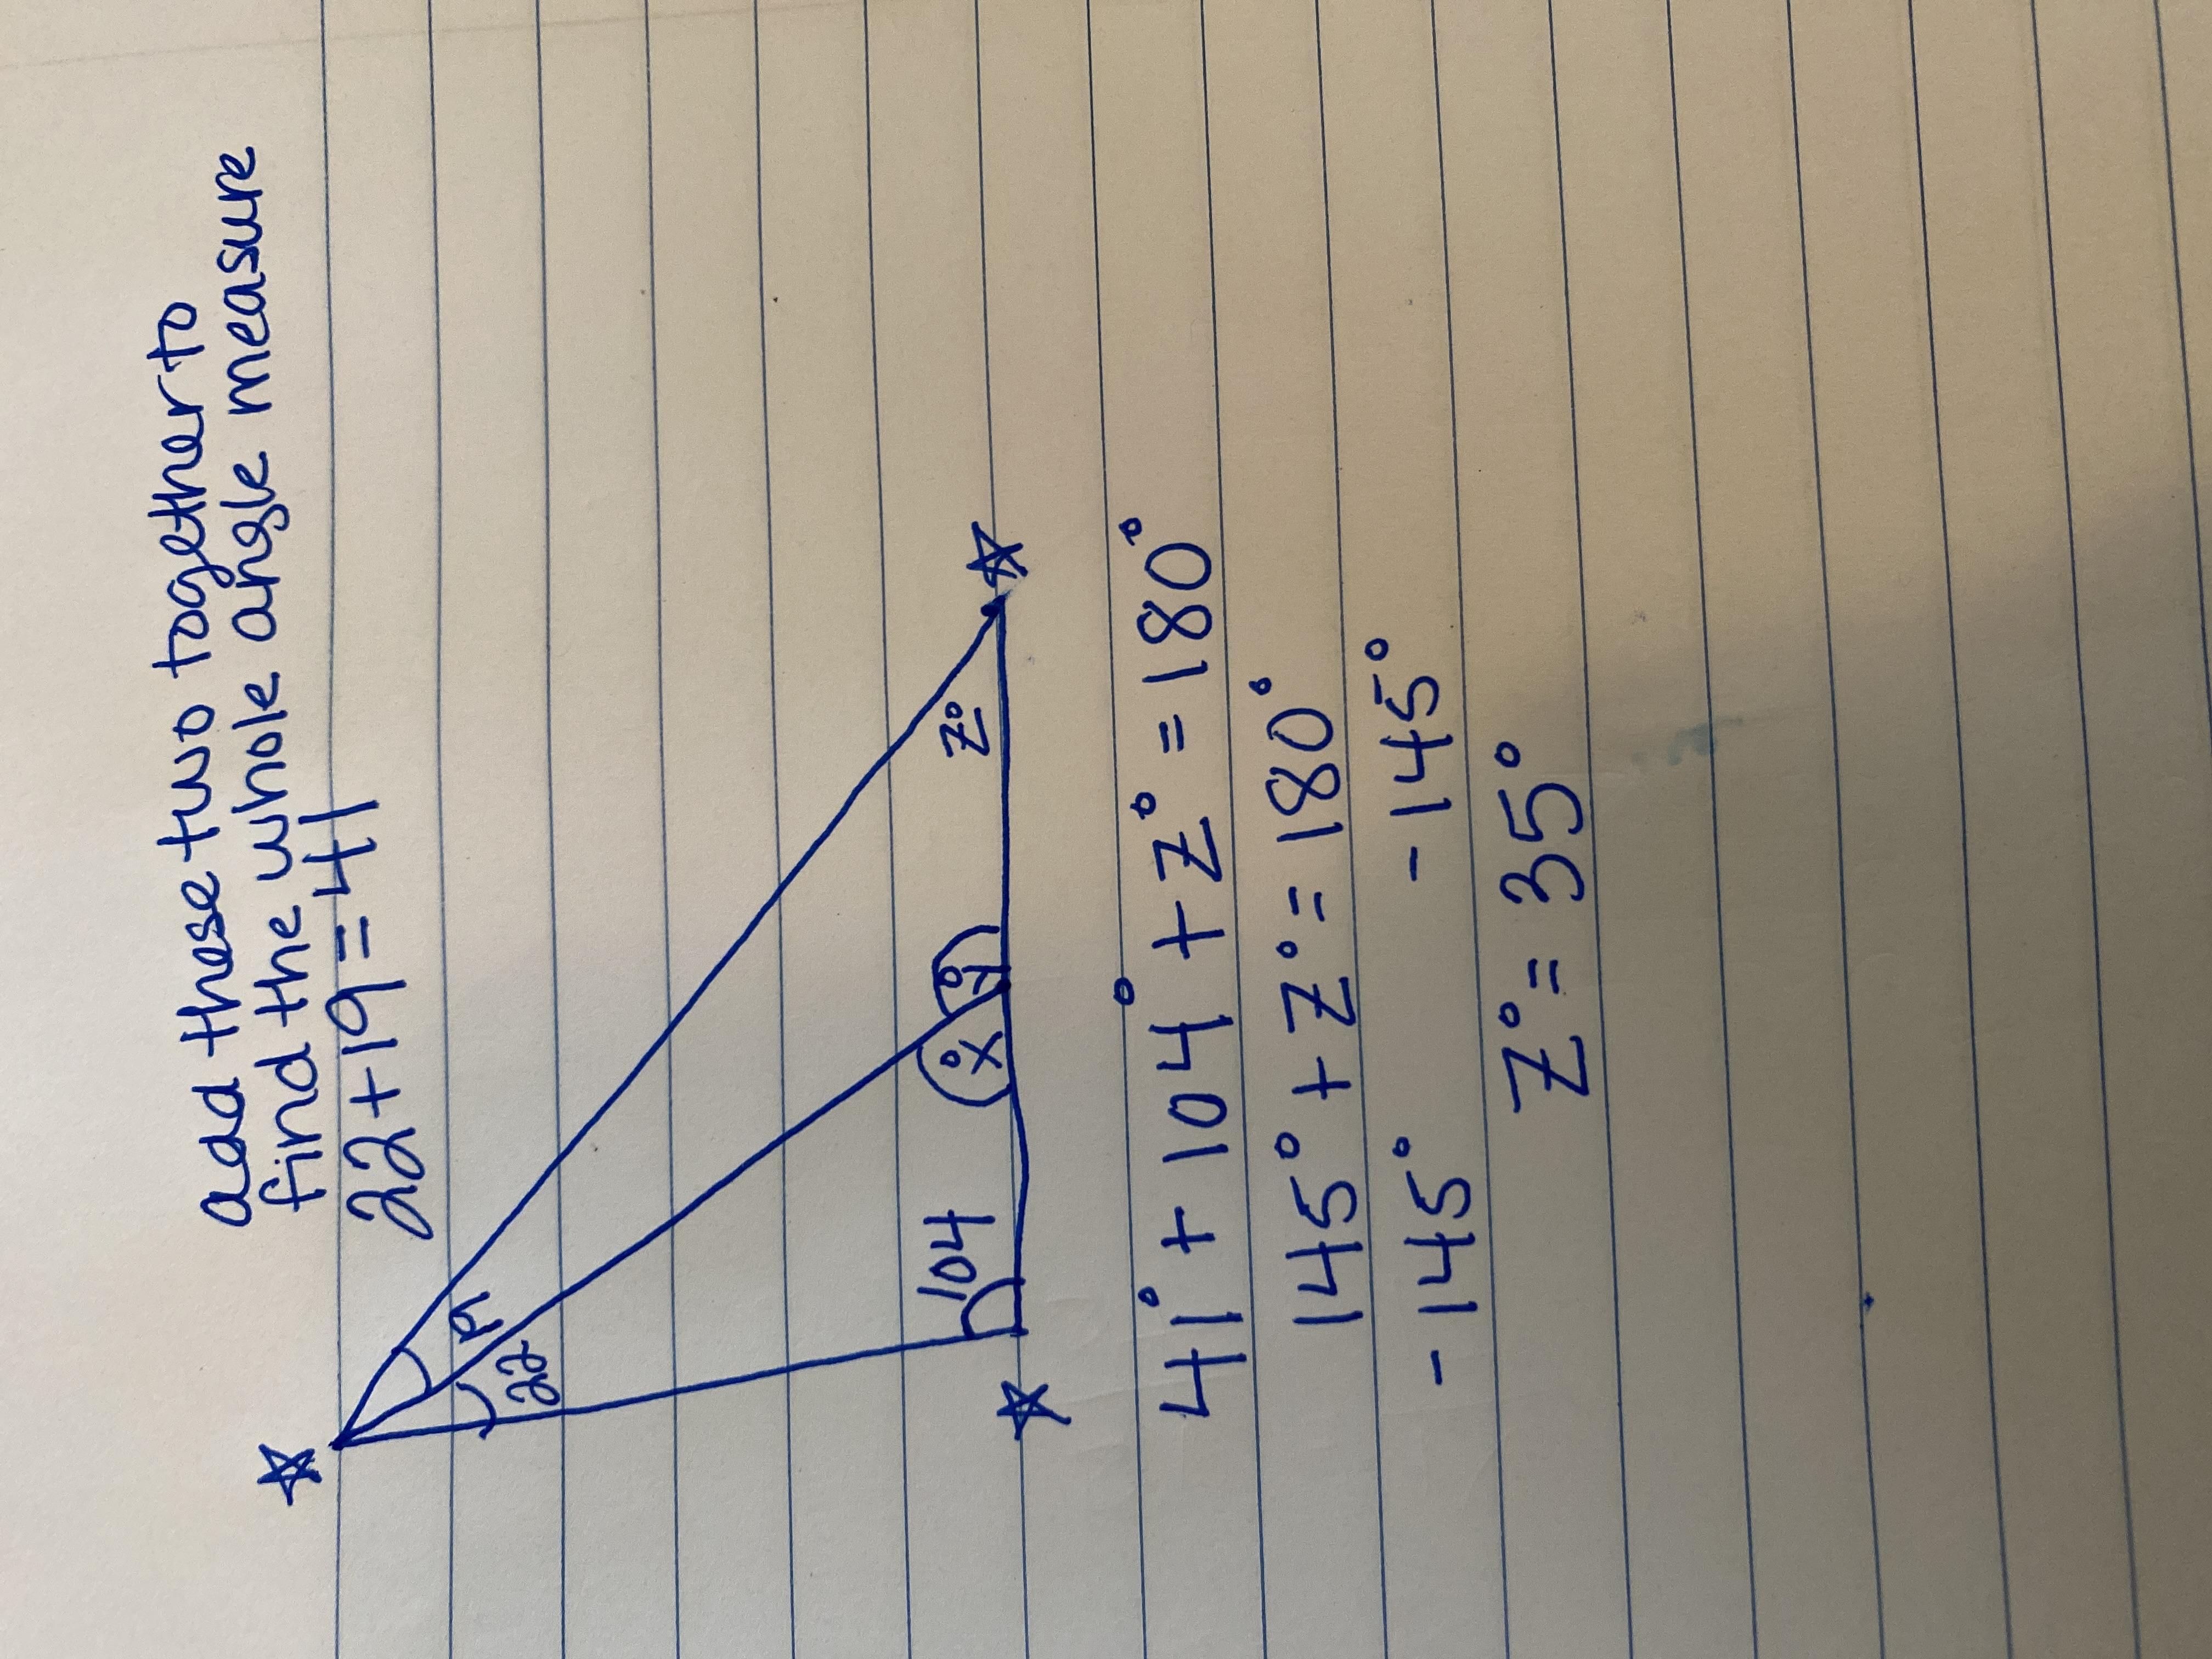 add these two together to
find the whole angle measure
22 + 19 = 41
19
22
104
x°
y°
z°
41° + 104° + z° = 180°
145° + z° = 180°
- 145° - 145°
z° = 35°